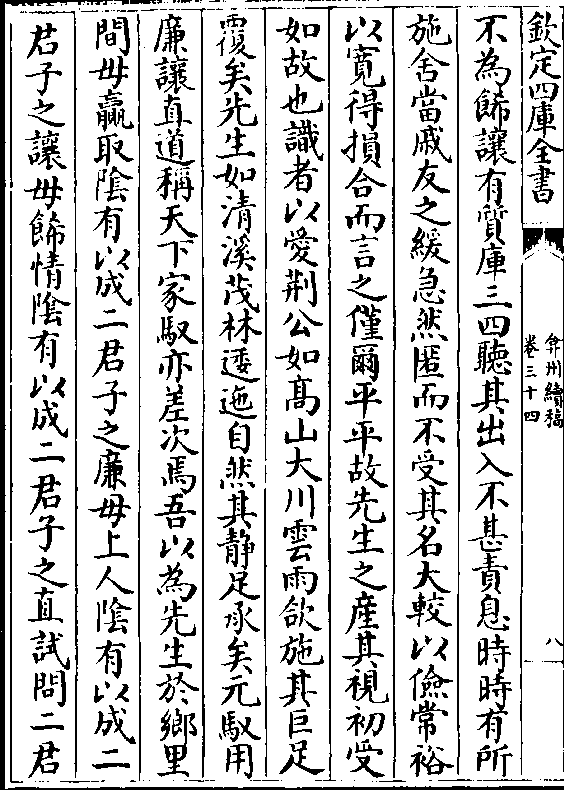 欽定四庫全書
弇州續稿
卷三十四
八
不為餙讓有質庫三四聽其出入不甚責息時時有所
施舍當戚友之緩急然匿而不受其名大較以儉常裕
以寛得損合而言之僅爾平平故先生之産其視初受
如故也識者以愛荆公如髙山大川雲雨欱施其巨足
覆矣先生如清溪茂林逶迤自然其静足承矣元馭用
廉讓直道稱天下家馭亦差次焉吾以為先生於鄉里
間毋贏取隂有以成二君子之廉毋上人隂有以成二
君子之讓毋餙情隂有以成二君子之直試問二君